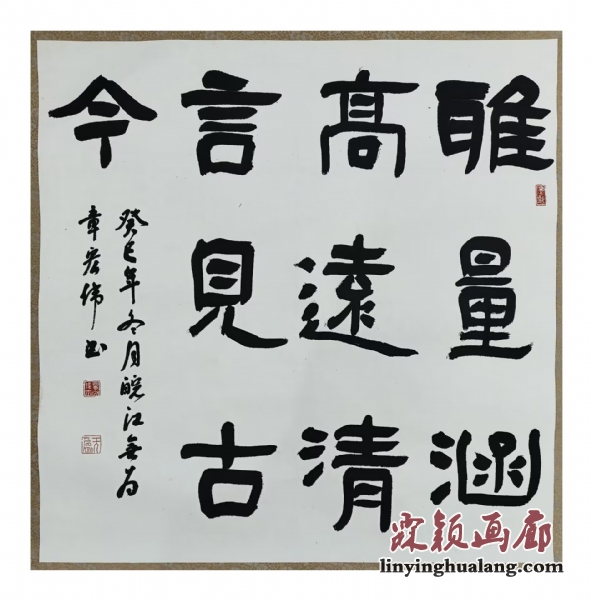 雅量涵
高遠清
言見古
今
癸巳年冬月皖江無為
章宏偉書
霖颖画廊
linyinghualang.com